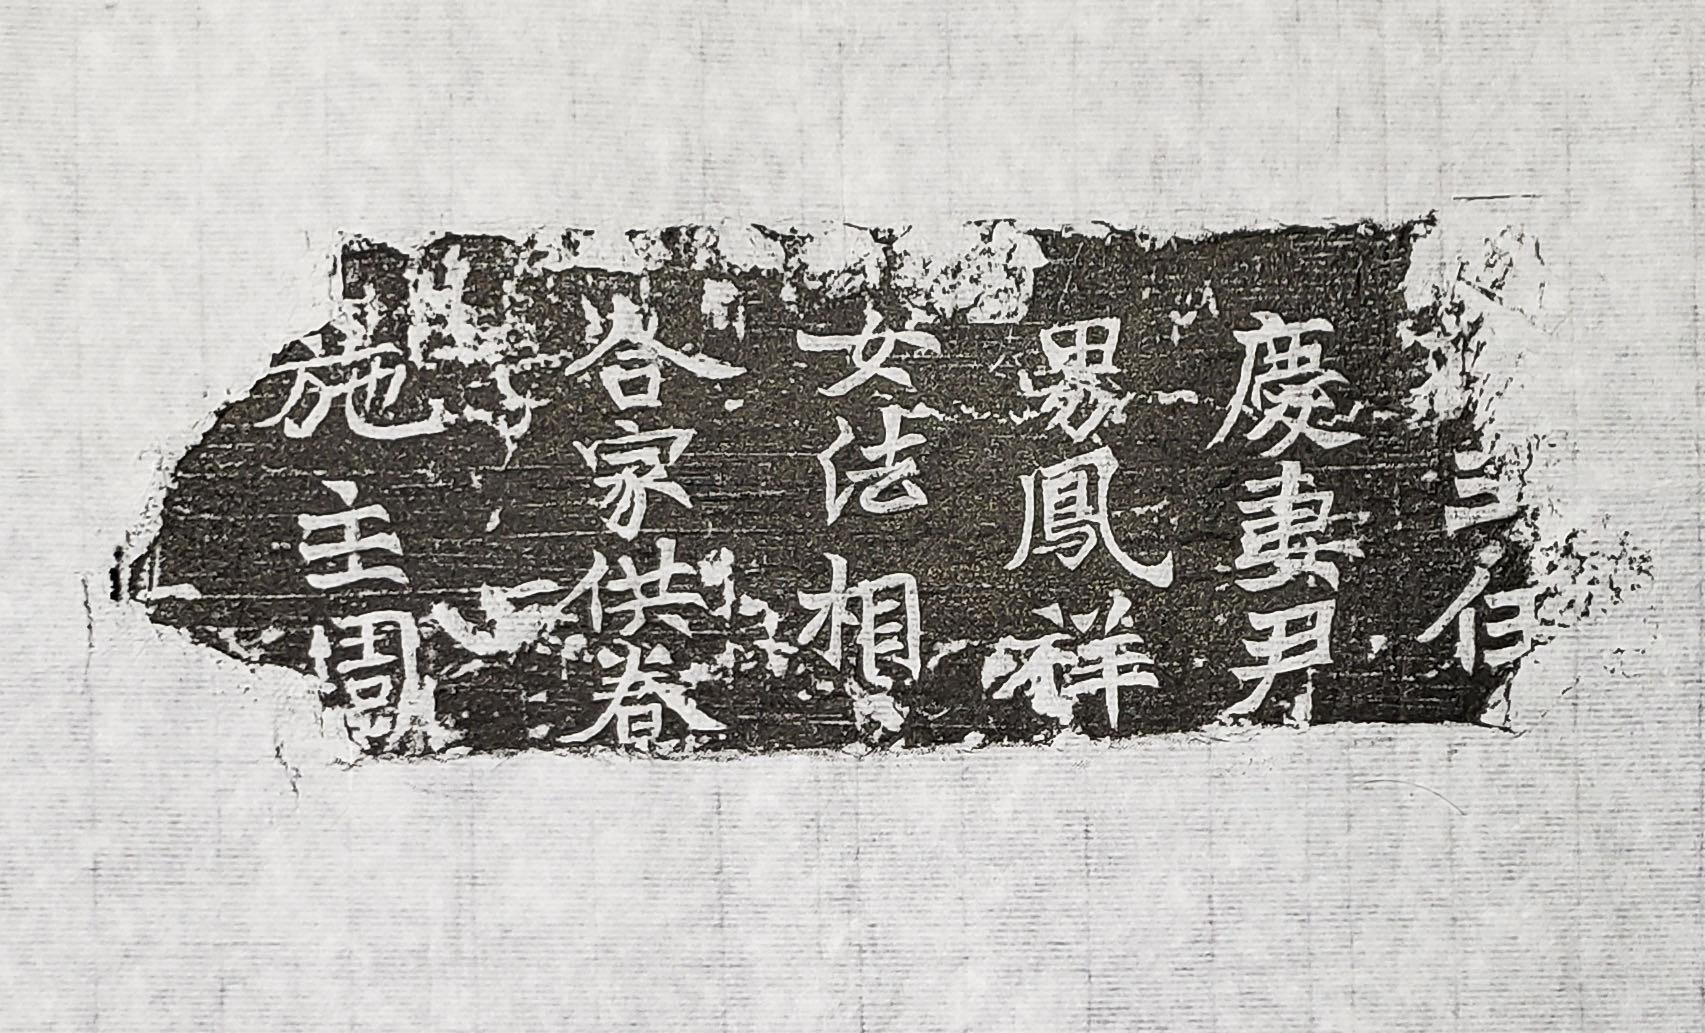 主任
慶妻尹
男鳳祥
女法相
合家供養
施主周